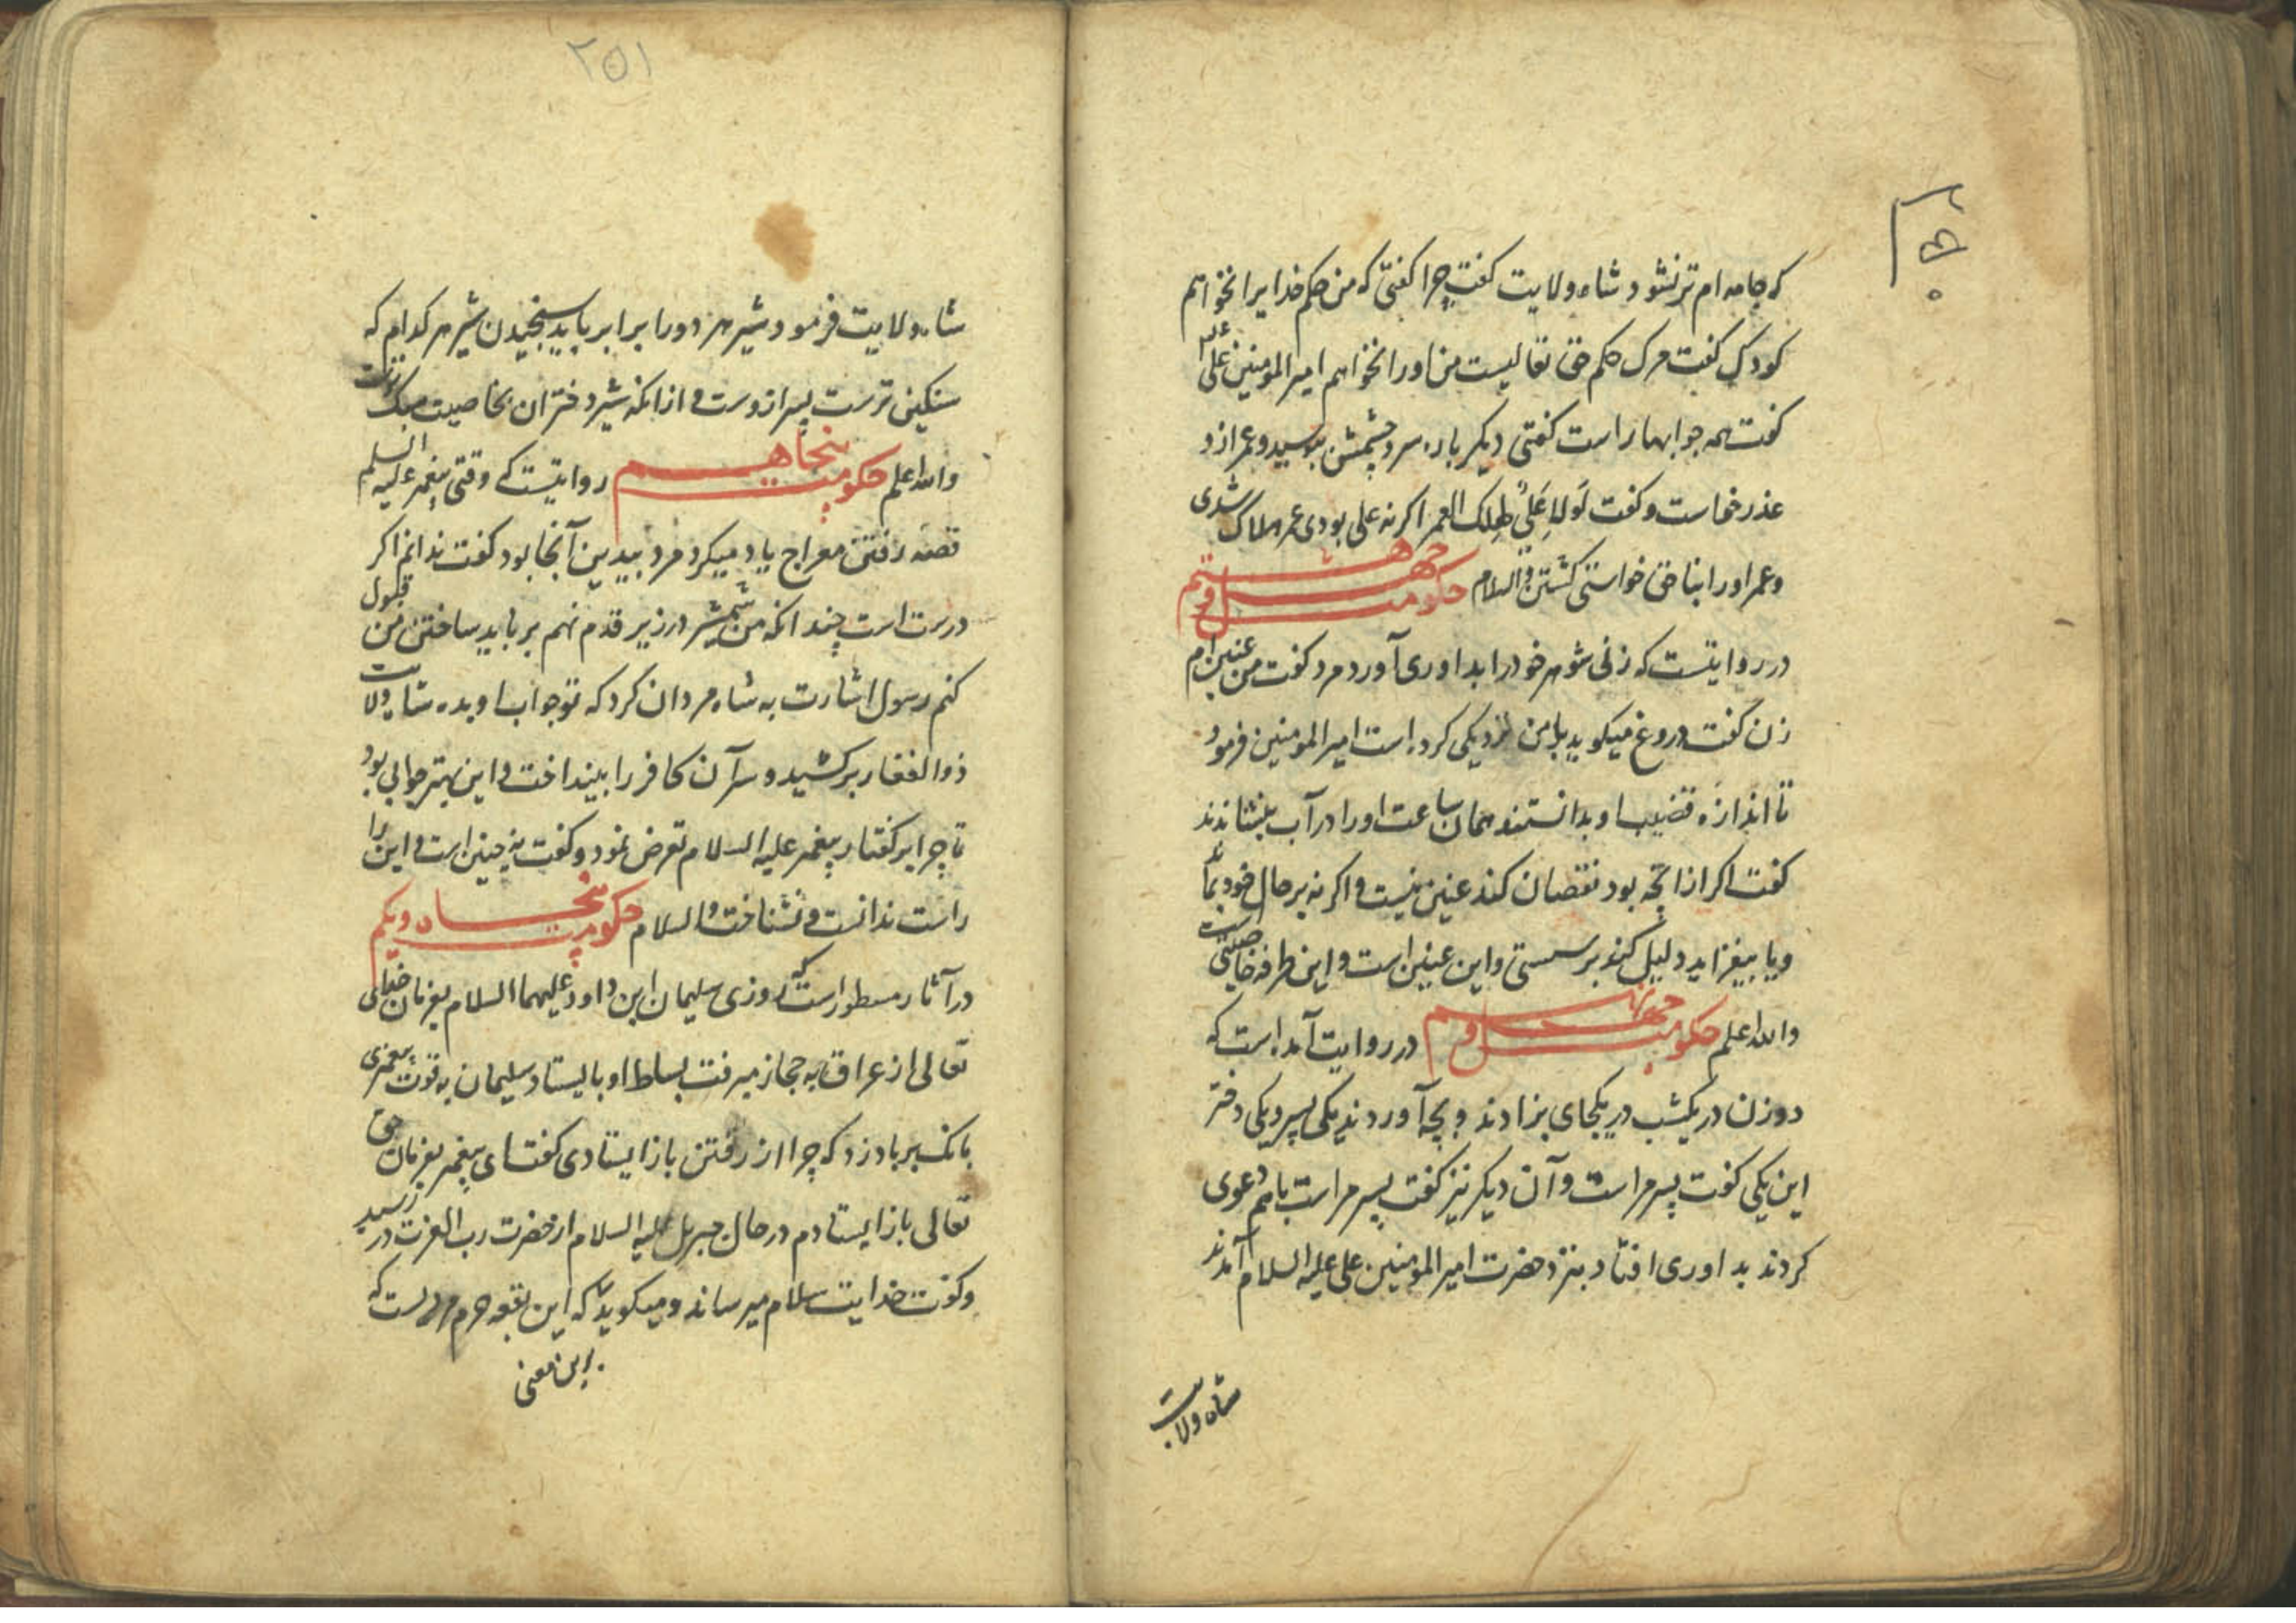 ۲۵۰
که جامه ام تر نشود شاه ولایت کفت چرا کفتی که من حکم خدایرا نخواهم
کودک کفت مرک حکم حق تعالیست من اورا نخواهم امیرالمومنین علی
کفت همه جوابها راست کفتی دیکر باره سر و چشمش ببوسید و عمر ازو
عذر خواست و کفت لَولا عَلیٌ لهلک العمر اکر نه علی بودی عمر هلاک شدی
و عمر اورا بناحق خواستی کشتن والسلام حکومت چهل و هشتم
در روایتست که زنی شوهر خودرا بداوری آورد مرد کفت من عنین ام
زن کفت دروغ میکوید با من نزدیکی کرده است امیرالمومنین فرمود
تا اندازهٔ قضیب او بدانستند همان ساعت اورا در آب بنشاندند
کفت اکر از انچه بود نقصان کند عنین نیست و اکر نه بر حال خود بماند
و یا بیفزاید دلیل کند بر سستی و این عنین است و این طرفه خاصیتی است
والله اعلم حکومت چهل و نهم در روایت آمده است که
دو زن در یکشب در یکجای بزادند و بچه آوردند یکی پسر و یکی دختر
این یکی کفت پسر مراست و آن دیکر نیز کفت پسر مراست باهم دعوی
کردند بداوری افتاد بنزد حضرت امیرالمومنین علی علیه السلام آمدند
شاه ولایت
۲۵۱
شاه ولایت فرمود شیر هر دورا برابر باید سنجیدن شیر هر کدام که
سنکین ترست پسر ازوست و از انکه شیر دختران بخاصیت سبک ترست
والله اعلم حکومت پنجاهم روایتست که وقتی پیغمبر علیه السلم
قصه رفتن معراج یاد میکرد مرد بیدین آنجا بود کفت ندانم اکر
درست است چندانکه من شمشیر در زیر قدم نهم بر باید ساختن من قبول
کنم رسول اشارت به شاه مردان کرد که تو جواب او بده شاه ولایت
ذوالفقار برکشید و سر آن کافر را بینداخت و این بهتر جوابی بود
تا چرا بر کفتار پیغمبر علیه السلام تعرض نمود و کفت نه چنین است و این را
راست ندانست و نشناخت والسلام حکومت پنجاه و یکم
در آثار مسطور است که روزی سلیمان ابن داود علیهما السلام بفرمان خدای
تعالی از عراق به حجاز میرفت بساط او بایستاد سلیمان به قوت پیغمبری
بانک بر باد زد که چرا از رفتن باز ایستادی کفتا ای پیغمبر بفرمان حق
تعالی باز ایستادم در حال جبریل علیه السلام از حضرت رب العزت در رسید
و کفت خدایت سلام میرساند و میکوید که این بقعه حرم است که
این معنی